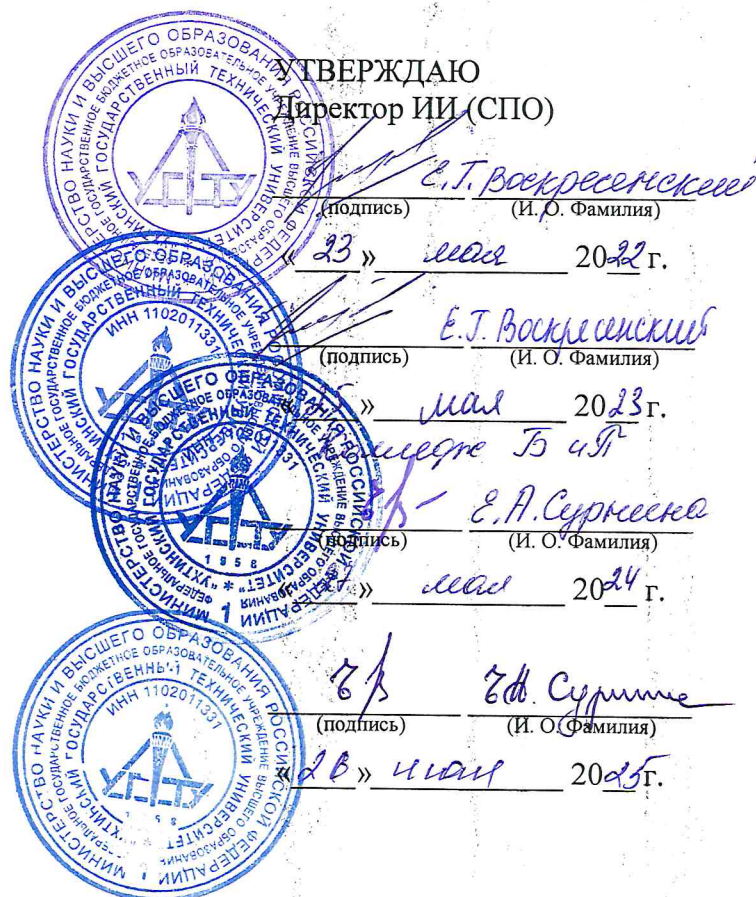 УТВЕРЖДАЮ
Директор ИИ (СПО)
Е.Г. Воскресенский
(подпись) (И. О. Фамилия)
«23» мая 2022 г.
Е.Г. Воскресенский
(подпись) (И. О. Фамилия)
» мая 2023 г.
Б и П
Е.А. Сурнина
(подпись) (И. О. Фамилия)
» мая 2024 г.
(подпись) (И. О. Фамилия)
» 2025 г.
МИНИСТЕРСТВО НАУКИ И ВЫСШЕГО ОБРАЗОВАНИЯ РОССИЙСКОЙ ФЕДЕРАЦИИ
ФЕДЕРАЛЬНОЕ ГОСУДАРСТВЕННОЕ БЮДЖЕТНОЕ ОБРАЗОВАТЕЛЬНОЕ УЧРЕЖДЕНИЕ ВЫСШЕГО ОБРАЗОВАНИЯ
"УХТИНСКИЙ ГОСУДАРСТВЕННЫЙ ТЕХНИЧЕСКИЙ УНИВЕРСИТЕТ"
ИНН 1102011331
УГТУ
1958
1